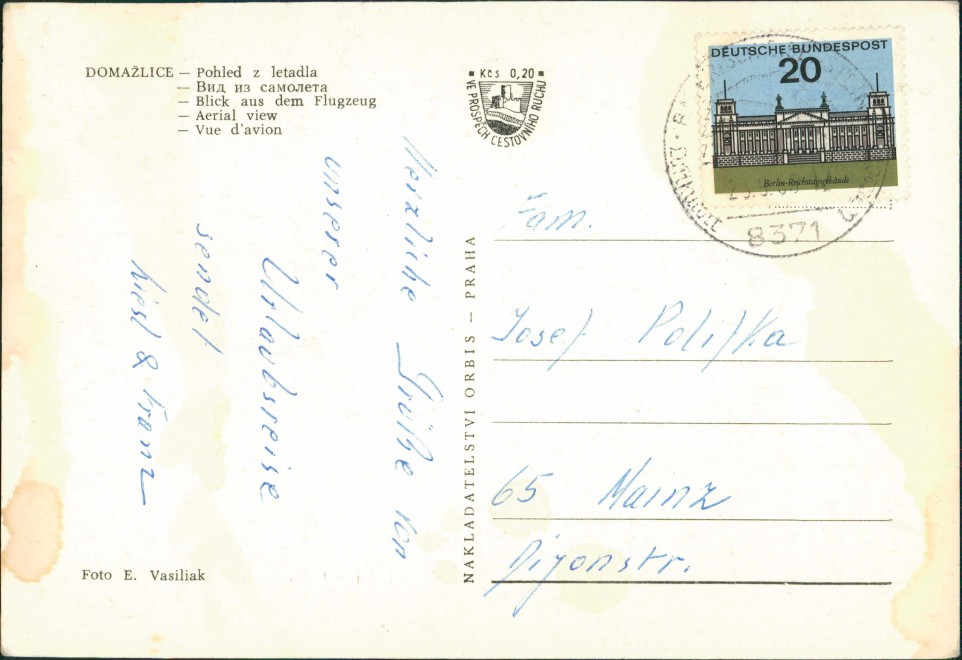 DOMAŽLICE — Pohled z letadla
— Вид из самолета
— Blick aus dem Flugzeug
— Aerial view
— Vue d'avion
Kčs 0,20
VE PROSPĚCH CESTOVNÍHO RUCHU
DEUTSCHE BUNDESPOST
20
Berlin-Reichstagsgebäude
8371
Herzliche Grüße von
unserer
Urlaubsreise
sendet
& Franz
NAKLADATELSTVÍ ORBIS — PRAHA
Fam.
Josef Polifka
65 Mainz
Dijonstr.
Foto E. Vasiliak